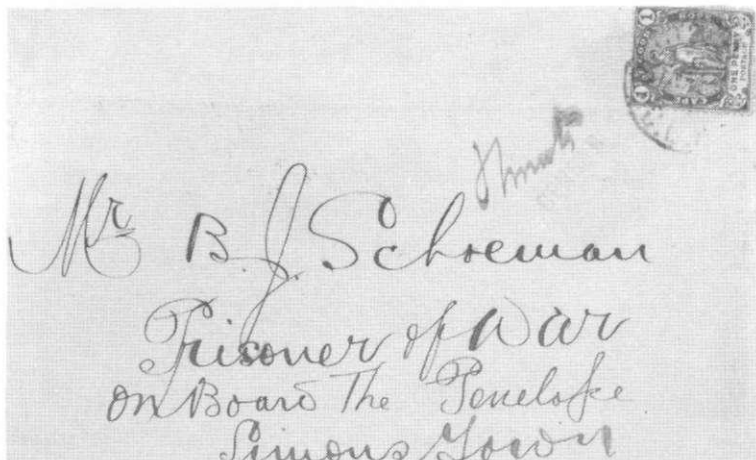 ONE PENNY
Mr B. J. Schoeman
Prisoner of War
on Board The Penelope
Simons Town